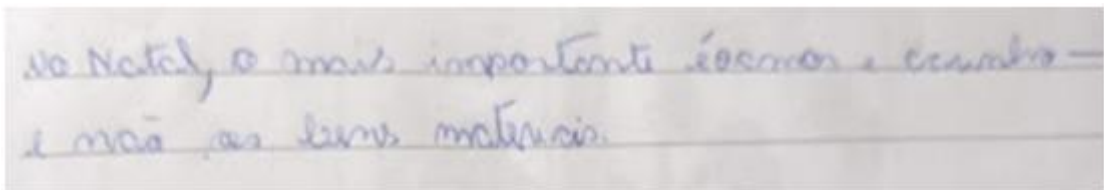 No Natal, o mais importante é o amor e
e não os bens materiais.